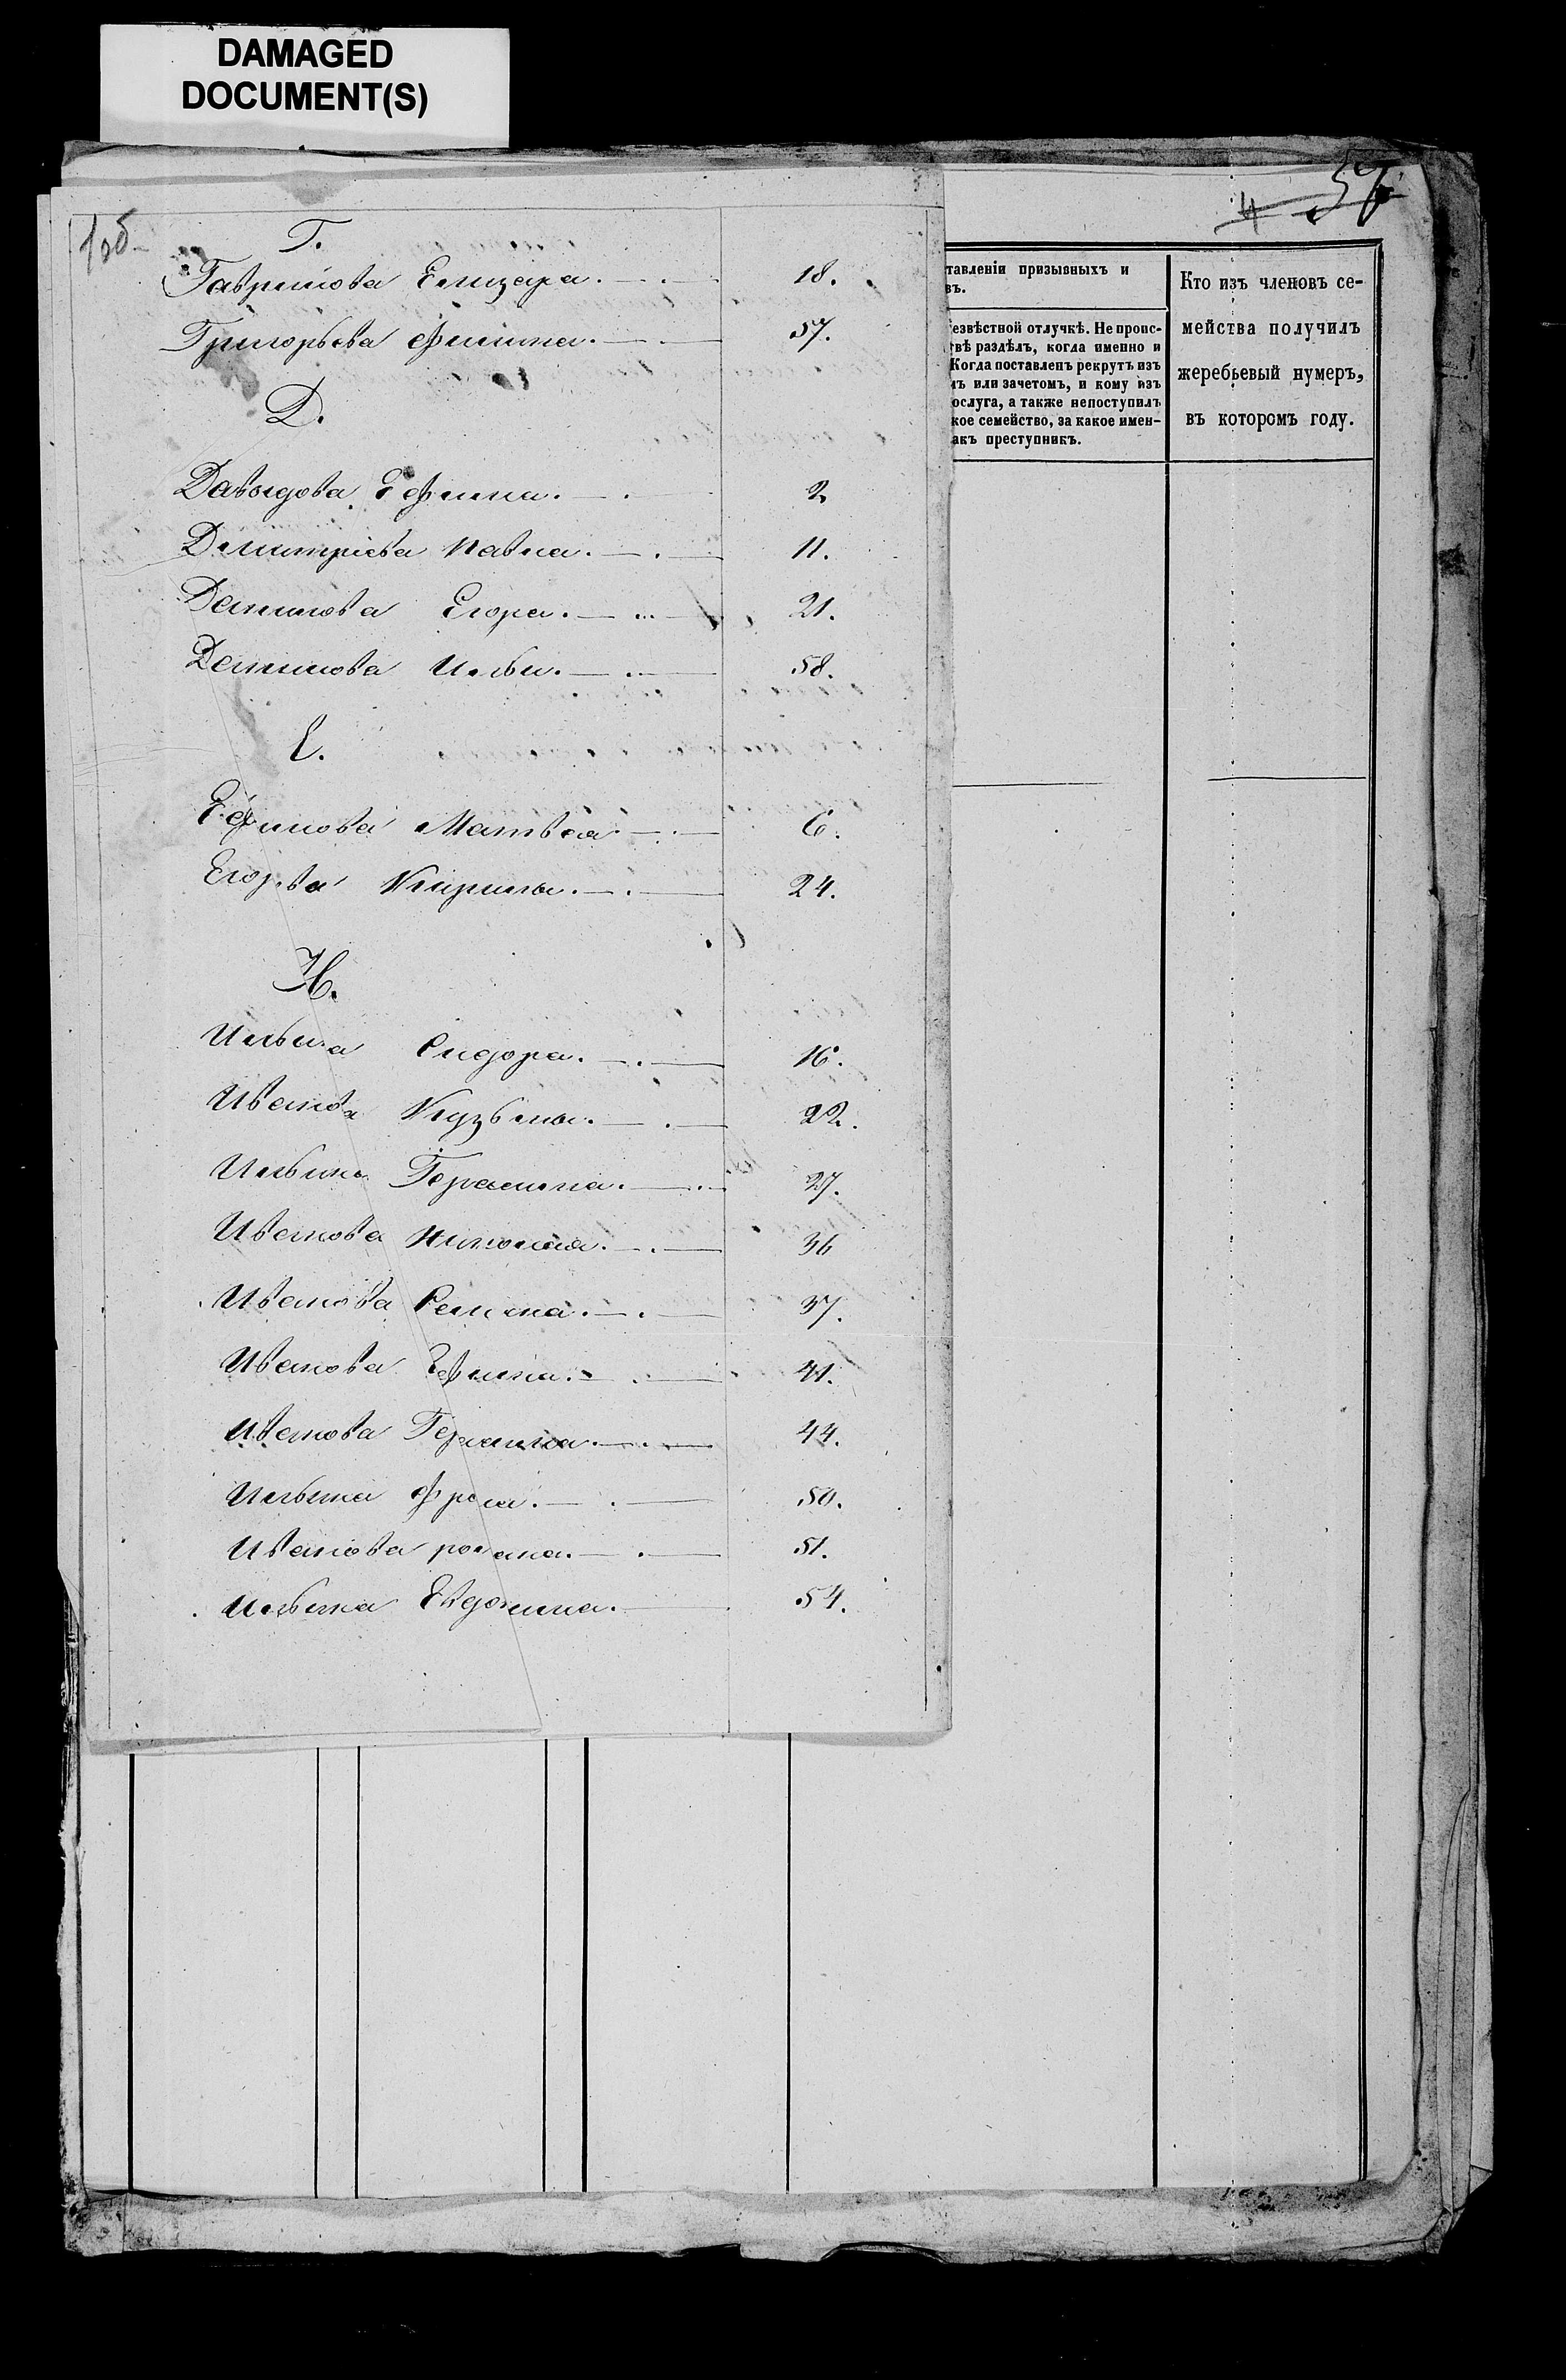 DAMAGED
DOCUMENT(S)
1об
57
4
Г.
Гаврилова Елизара. 18.
Григорьева Филипа. 57.
Д.
Давыдова Ефима. 2
Дмитриева Павла. 11.
Данилова Егора. 21.
Данилова Ильи. 58.
Е.
Ефимова Матвея. 6.
Егорова Кирила. 24.
И.
Ильина Сидора. 16.
Иванова Кузьмы. 22.
Ильина Герасима. 27.
Иванова Николая. 36
Иванова Семена. 37.
Иванова Ефима. 41.
Иванова Герасима. 44.
Ильина Фрола. 50.
Иванова Романа. 51.
Ильина Евдокима. 54.
тавленіи призывныхъ и
въ.
езвѣстной отлучкѣ. Не проис-
твѣ раздѣлъ, когда именно и
Когда поставленъ рекрутъ изъ
мъ или зачетомъ, и кому изъ
ослуга, а также непоступилъ
кое семейство, за какое имен-
акъ преступникъ.
Кто изъ членовъ се-
мейства получилъ
жеребьевый нумеръ,
въ которомъ году.